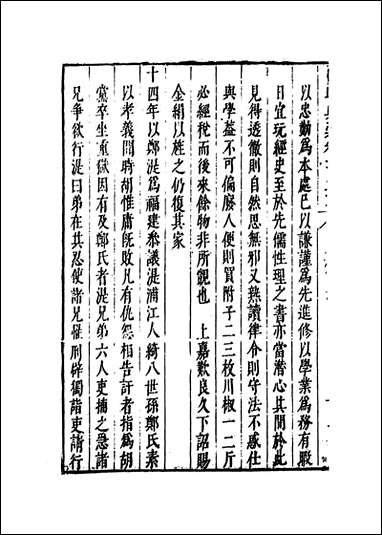 以忠勤爲本處己以謙謹爲先進修以學業爲務有暇
日宜玩經史至於先儒性理之書亦當潛心其間於此
見得透徹則自然思無邪又熟讀律令則守法不惑仕
與學蓋不可偏廢人便則買附子二三枚川椒一二斤
必經稅而後來餘物非所覬也　上嘉歎良久下詔賜
金絹以旌之仍復其家
十四年以鄭湜爲福建參議湜浦江人綺八世孫鄭氏素
以孝義聞時胡惟庸旣敗凡有仇怨相告訐者指爲胡
黨卒坐重獄因有及鄭氏者湜兄弟六人吏捕之急諸
兄爭欲行湜曰弟在其忍使諸兄罹刑辟獨詣吏請行